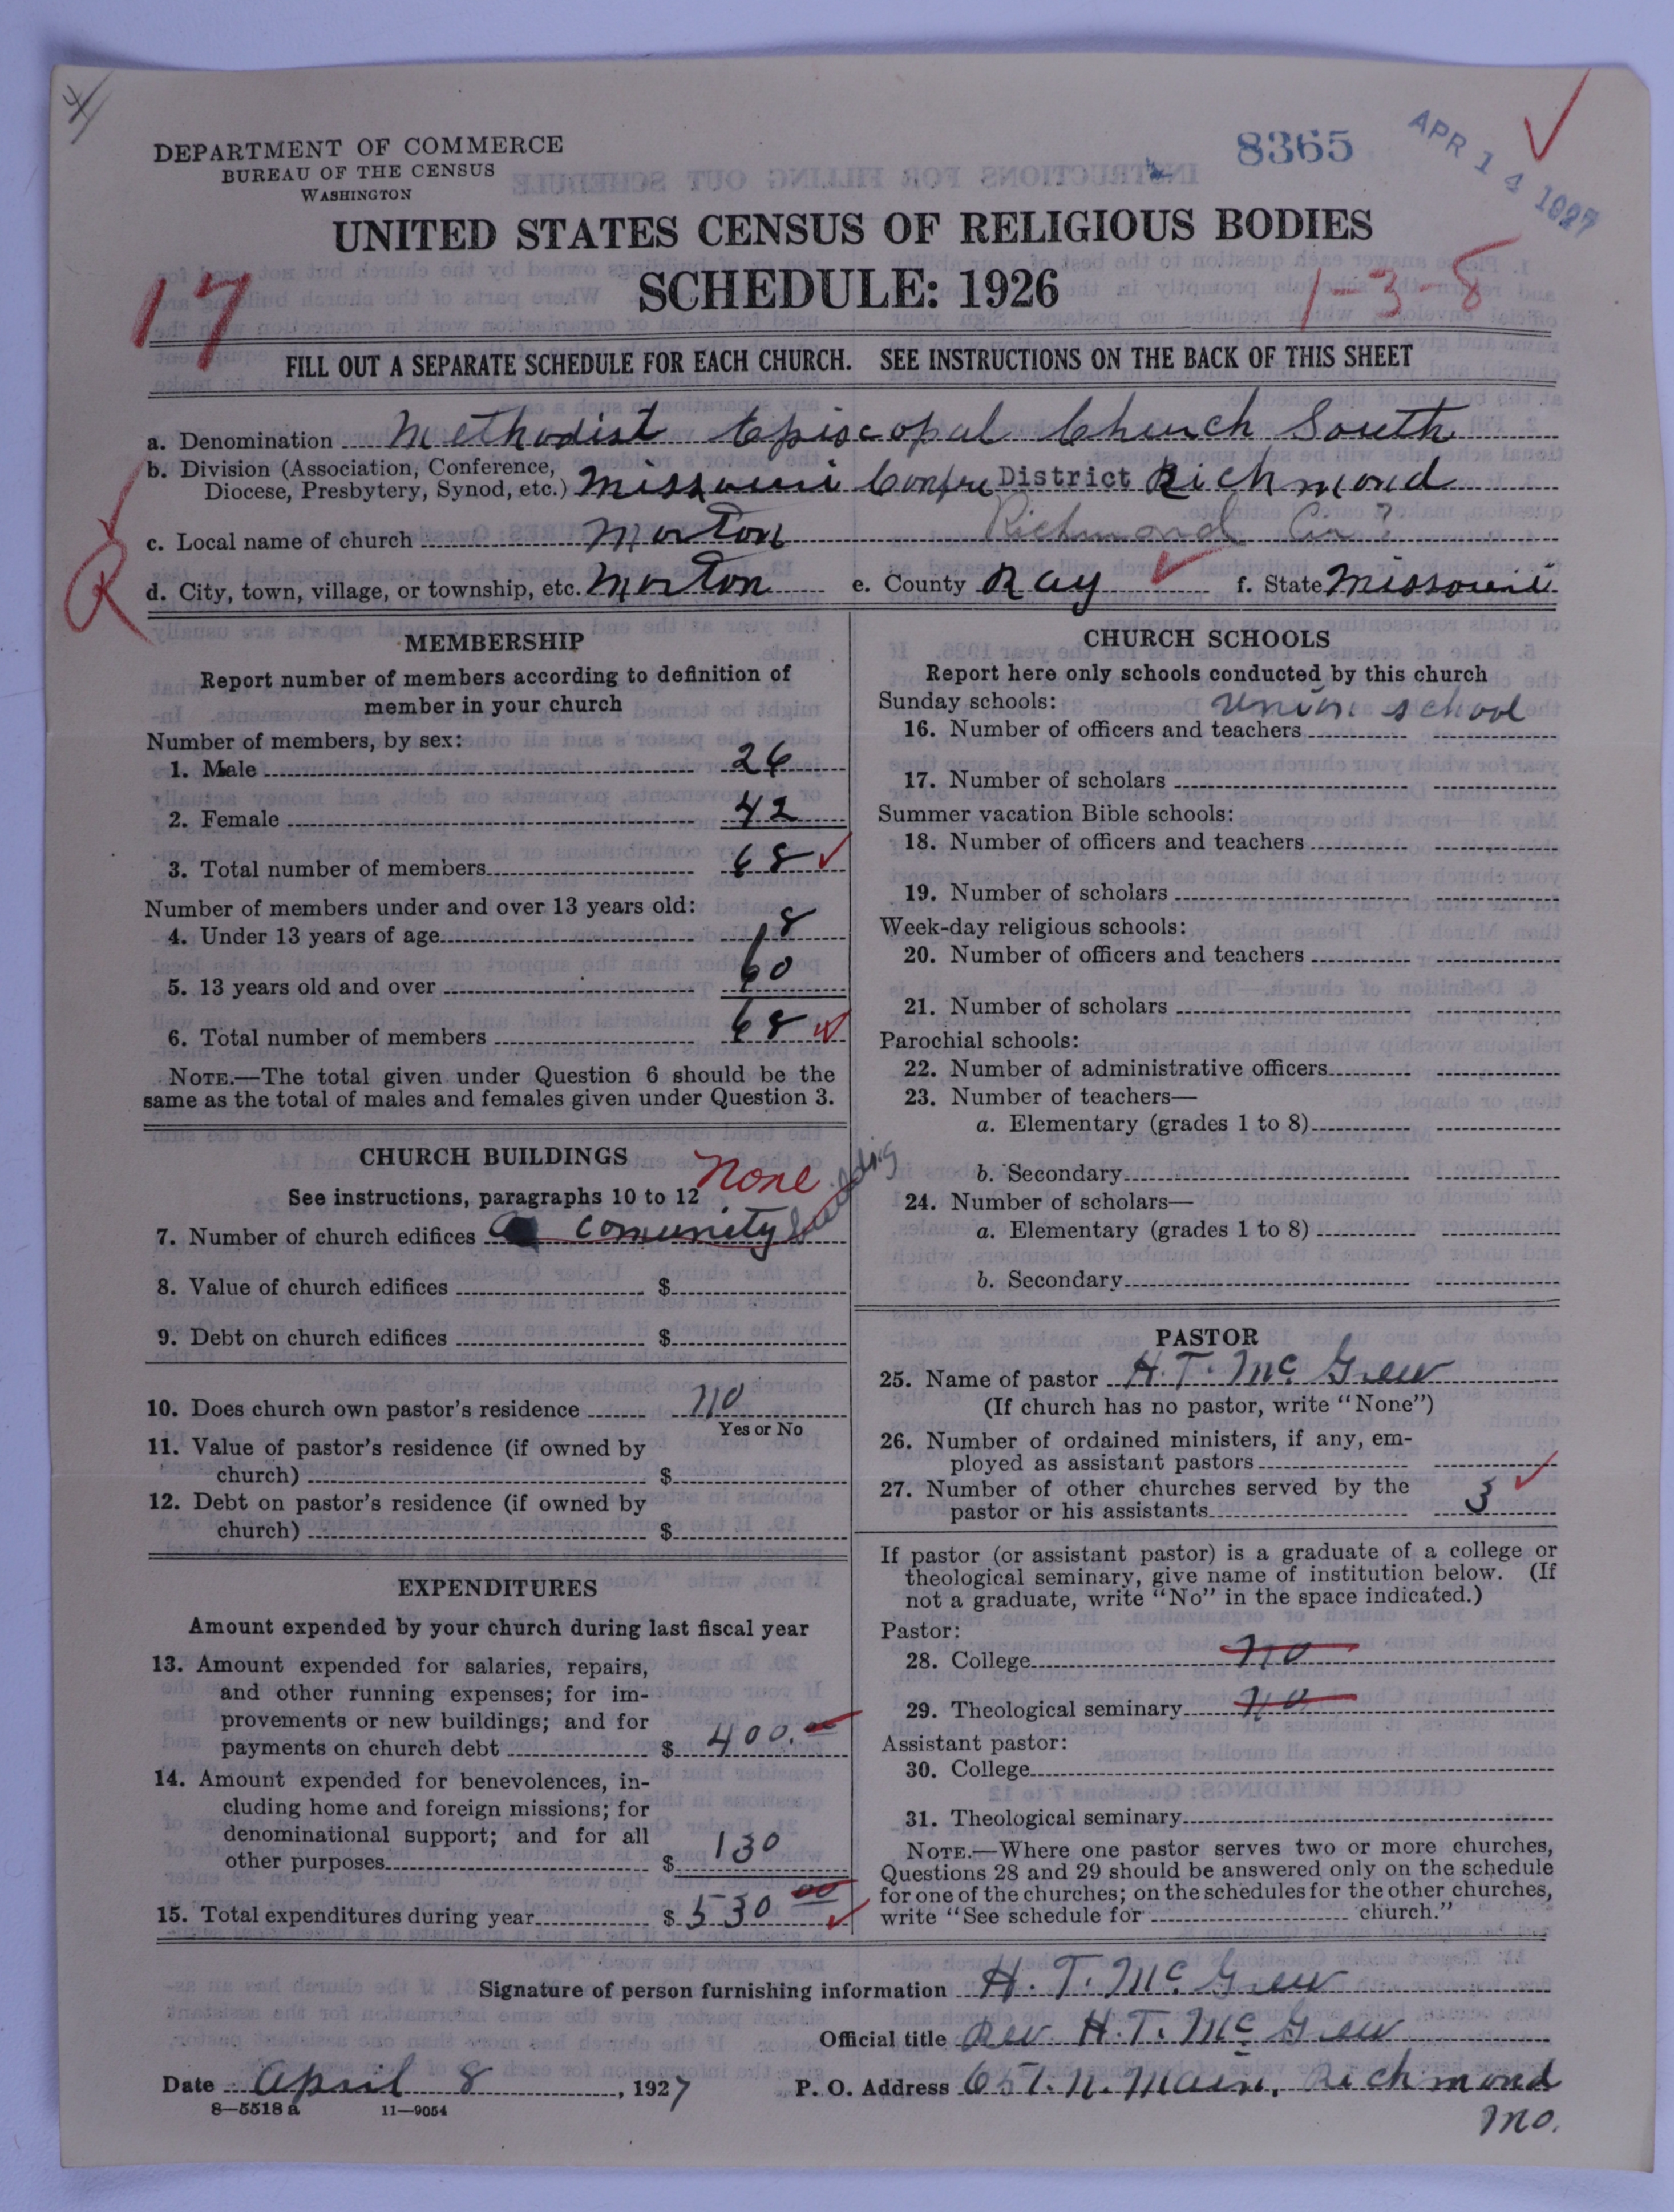 DEPARTMENT OF COMMERCE
BUREAU OF THE CENSUS
WASHINGTON
8365
APR 14 1927
UNITED STATES CENSUS OF RELIGIOUS BODIES
SCHEDULE: 1926
17
1-3-8
FILL OUT A SEPARATE SCHEDULE FOR EACH CHURCH. SEE INSTRUCTIONS ON THE BACK OF THIS SHEET
a. Denomination Methodist Episcopal Church South
b. Division (Association, Conference, Diocese, Presbytery, Synod, etc.) Missouri Confre District Richmond
c. Local name of church Morton Richmond Cir.
R
d. City, town, village, or township, etc. Morton e. County Ray f. State Missouri
MEMBERSHIP
Report number of members according to definition of
member in your church
Number of members, by sex:
1. Male 26
2. Female 42
3. Total number of members 68
Number of members under and over 13 years old:
4. Under 13 years of age 8
5. 13 years old and over 60
6. Total number of members 68
NOTE.—The total given under Question 6 should be the
same as the total of males and females given under Question 3.
CHURCH BUILDINGS
See instructions, paragraphs 10 to 12 None
7. Number of church edifices comunity building
8. Value of church edifices $
9. Debt on church edifices $
10. Does church own pastor's residence no
Yes or No
11. Value of pastor's residence (if owned by
church) $
12. Debt on pastor's residence (if owned by
church) $
EXPENDITURES
Amount expended by your church during last fiscal year
13. Amount expended for salaries, repairs,
and other running expenses; for im-
provements or new buildings; and for
payments on church debt $ 400.00
14. Amount expended for benevolences, in-
cluding home and foreign missions; for
denominational support; and for all
other purposes $ 130
15. Total expenditures during year $ 530 00
CHURCH SCHOOLS
Report here only schools conducted by this church
Sunday schools: Union school
16. Number of officers and teachers
17. Number of scholars
Summer vacation Bible schools:
18. Number of officers and teachers
19. Number of scholars
Week-day religious schools:
20. Number of officers and teachers
21. Number of scholars
Parochial schools:
22. Number of administrative officers
23. Number of teachers—
a. Elementary (grades 1 to 8)
b. Secondary
24. Number of scholars—
a. Elementary (grades 1 to 8)
b. Secondary
PASTOR
25. Name of pastor H. T. McGrew
(If church has no pastor, write "None")
26. Number of ordained ministers, if any, em-
ployed as assistant pastors
27. Number of other churches served by the
pastor or his assistants 3
If pastor (or assistant pastor) is a graduate of a college or
theological seminary, give name of institution below. (If
not a graduate, write "No" in the space indicated.)
Pastor:
28. College no
29. Theological seminary no
Assistant pastor:
30. College
31. Theological seminary
NOTE.—Where one pastor serves two or more churches,
Questions 28 and 29 should be answered only on the schedule
for one of the churches; on the schedules for the other churches,
write "See schedule for church."
Signature of person furnishing information H. T. McGrew
Official title Rev H. T. McGrew
Date April 8, 1927 P. O. Address 651. N. Main, Richmond
Mo.
8—5518 a 11—9054